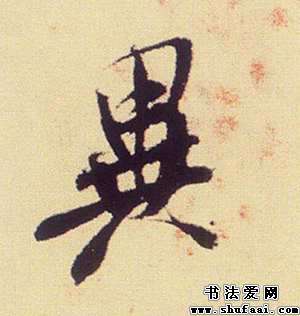 異
书法爱网
www.shufaai.com